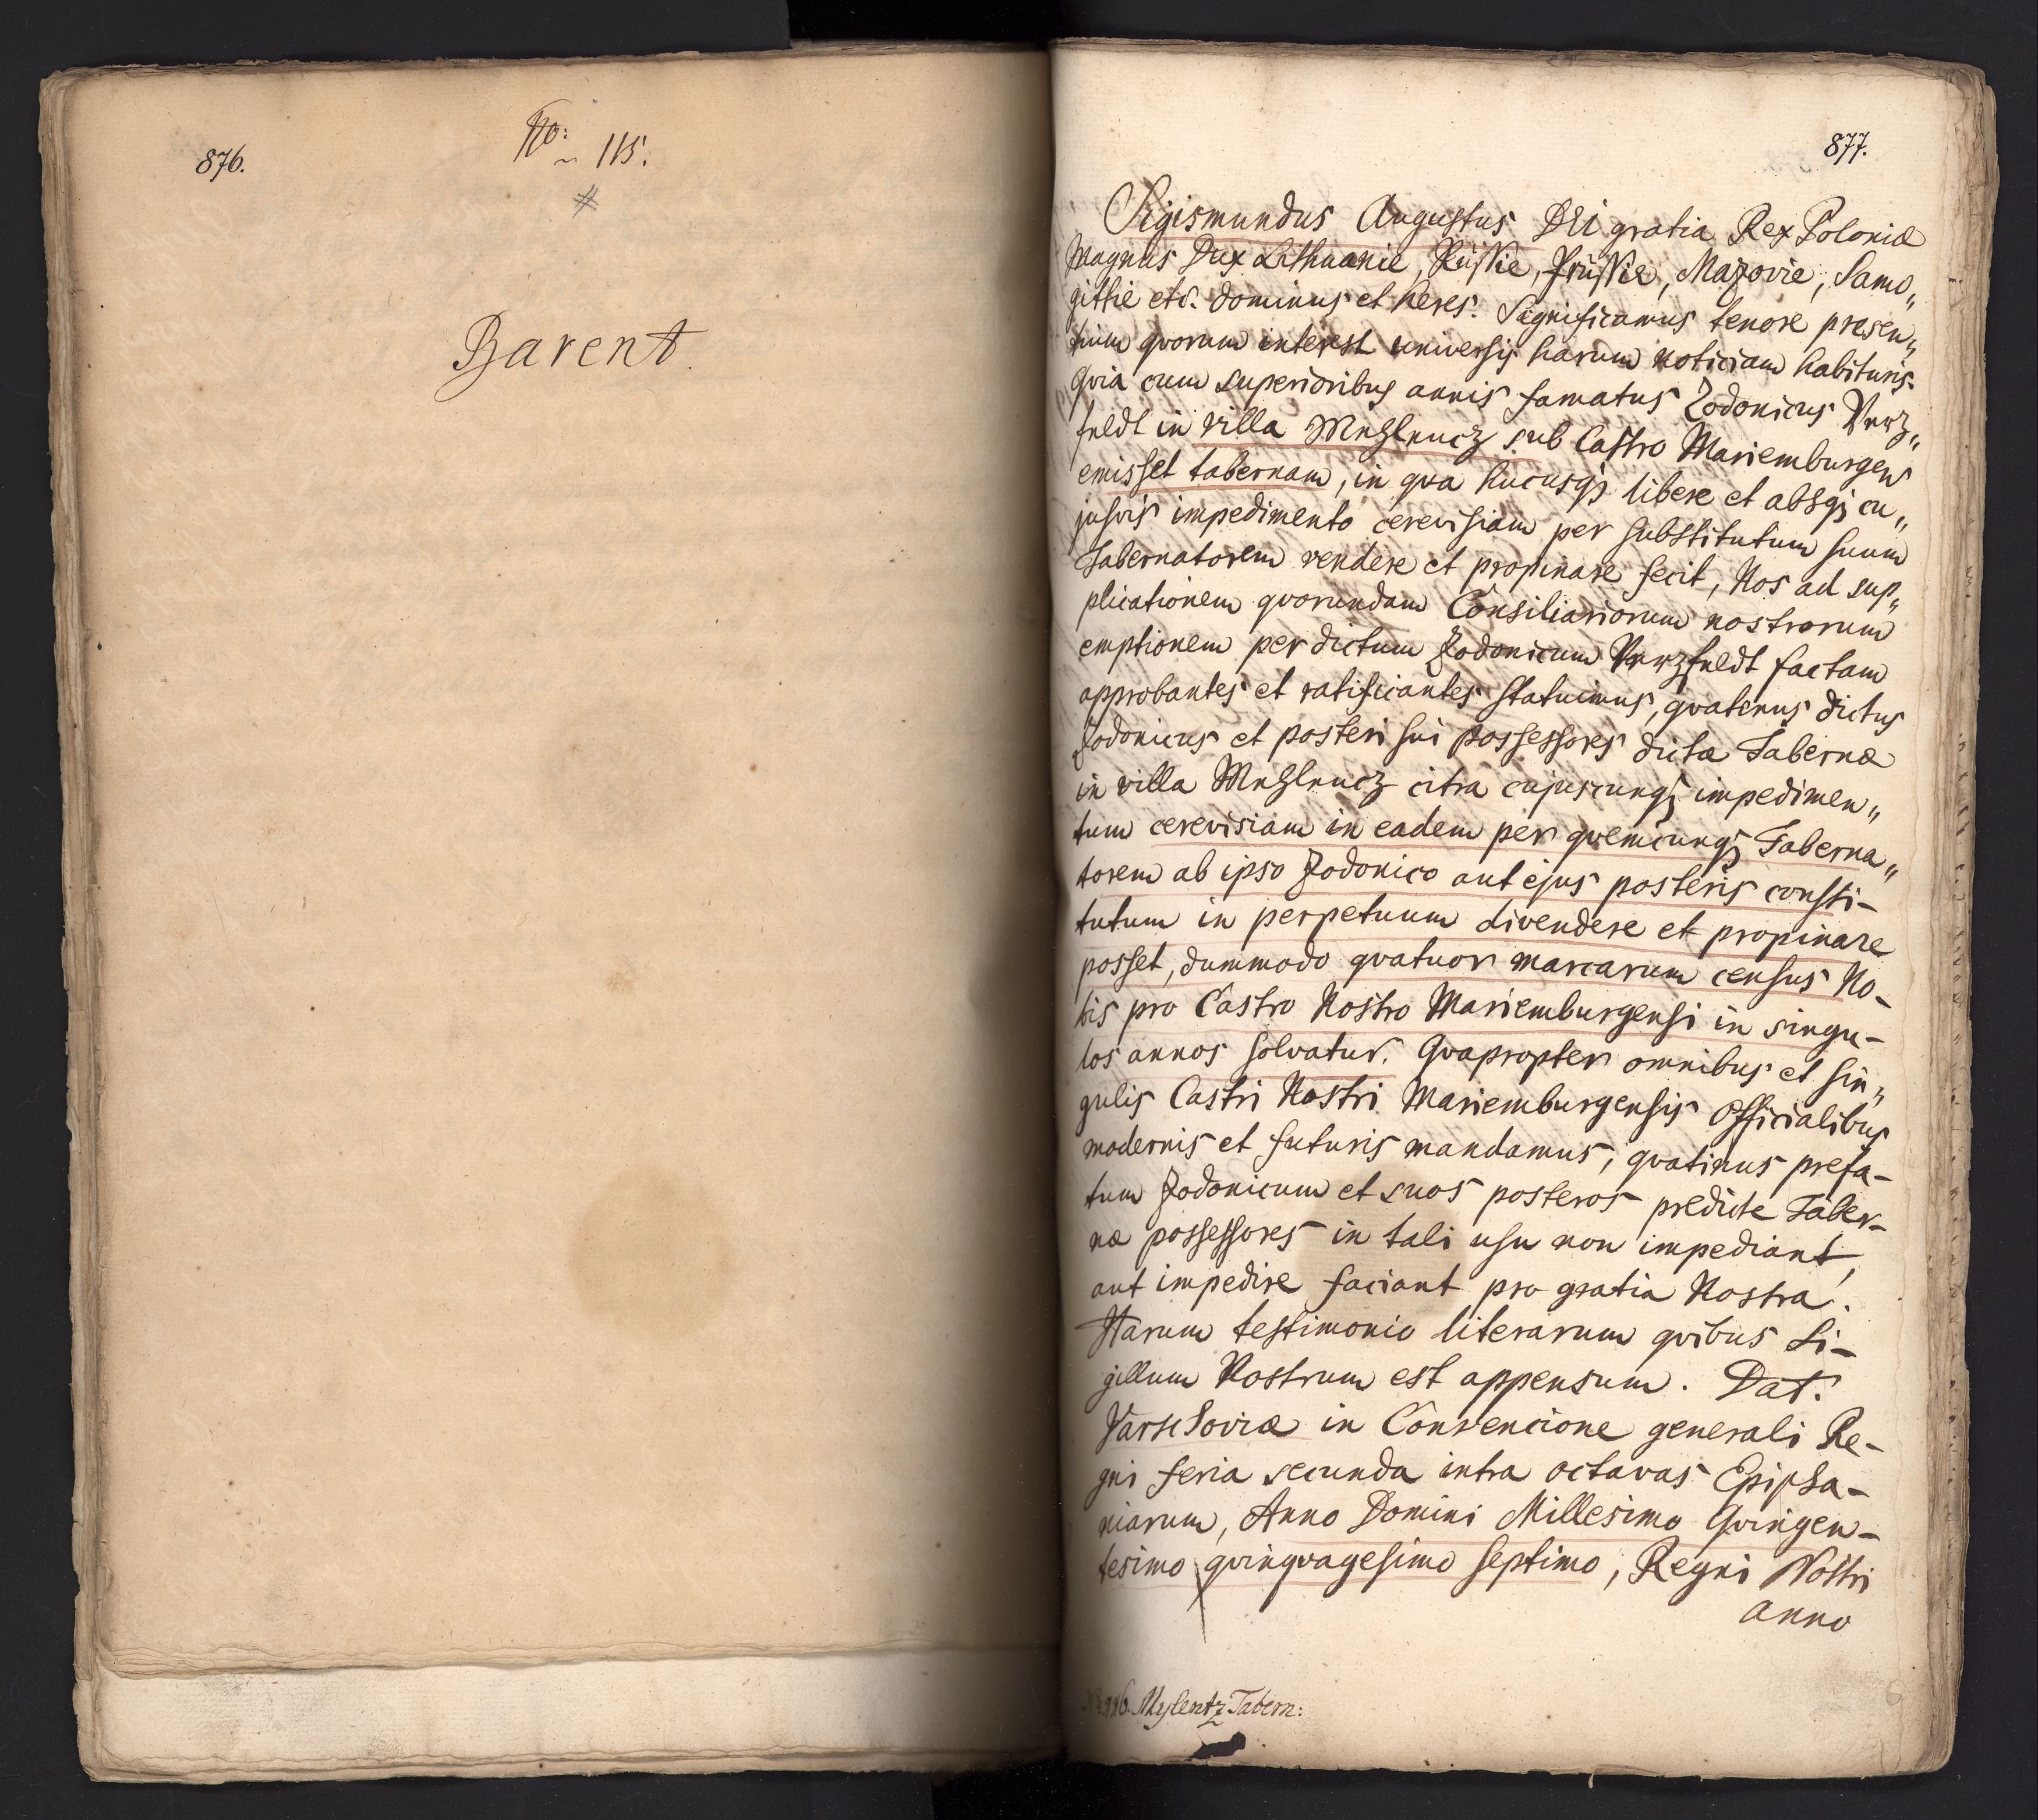 876.
No: 115.
#
Barent.
877.
Sigismundus Augustus DEi gratia Rex Poloniæ
Magnus Dux Lithuanie, Russie, Prussie, Mazovie, Samo„
gittie etc. dominus et heres. Significamus tenore presen„
tium qvorum interest universis harum noticiam habituris.
Qvia cum superioribus annis famatus Jodonicus
feldt in villa Mehlencz sub Castro Mariemburgen
emisset tabernam, in qva hucusqz libere et absqz cu„
jusvis impedimento cerevisiam per substitutum suum
Tabernatorem vendere et propinare fecit, Nos ad sup„
plicationem qvorundam Consiliariorum nostrorum
emptionem per dictum Jodonicum factam
approbantes et ratificantes statuimus, qvatenus dictus
Jodonicus et posteri sui possessores dictæ Tabernæ
in villa Mehlencz citra cujuscunqz impedimen„
tum cerevisiam in eadem per qvemcunqz Taberna„
torem ab ipso Jodonico aut ejus posteris consti-
tutum in perpetuum divendere et propinare
posset, dummodo qvatuor marcarum census No-
bis pro Castro Nostro Mariemburgensi in singu-
los annos solvatur. Qvapropter omnibus et sin„
gulis Castri Nostri Mariemburgensis Officialibus
modernis et futuris mandamus, qvatinus prefa-
tum Jodonicum et suos posteros predicte Taber-
næ possessores in tali usu non impediant,
aut impedire faciant pro gratia Nostra.
Harum testimonio literarum qvibus Si-
gillum Nostrum est appensum. Dat.
Varschoviæ in Convencione generali Re-
gni feria secunda intra octavas Epipha-
niarum, Anno Domini Millesimo Qvingen-
tesimo qvinqvagesimo septimo, Regni Nostri
anno
116. Mylentz Tabern: